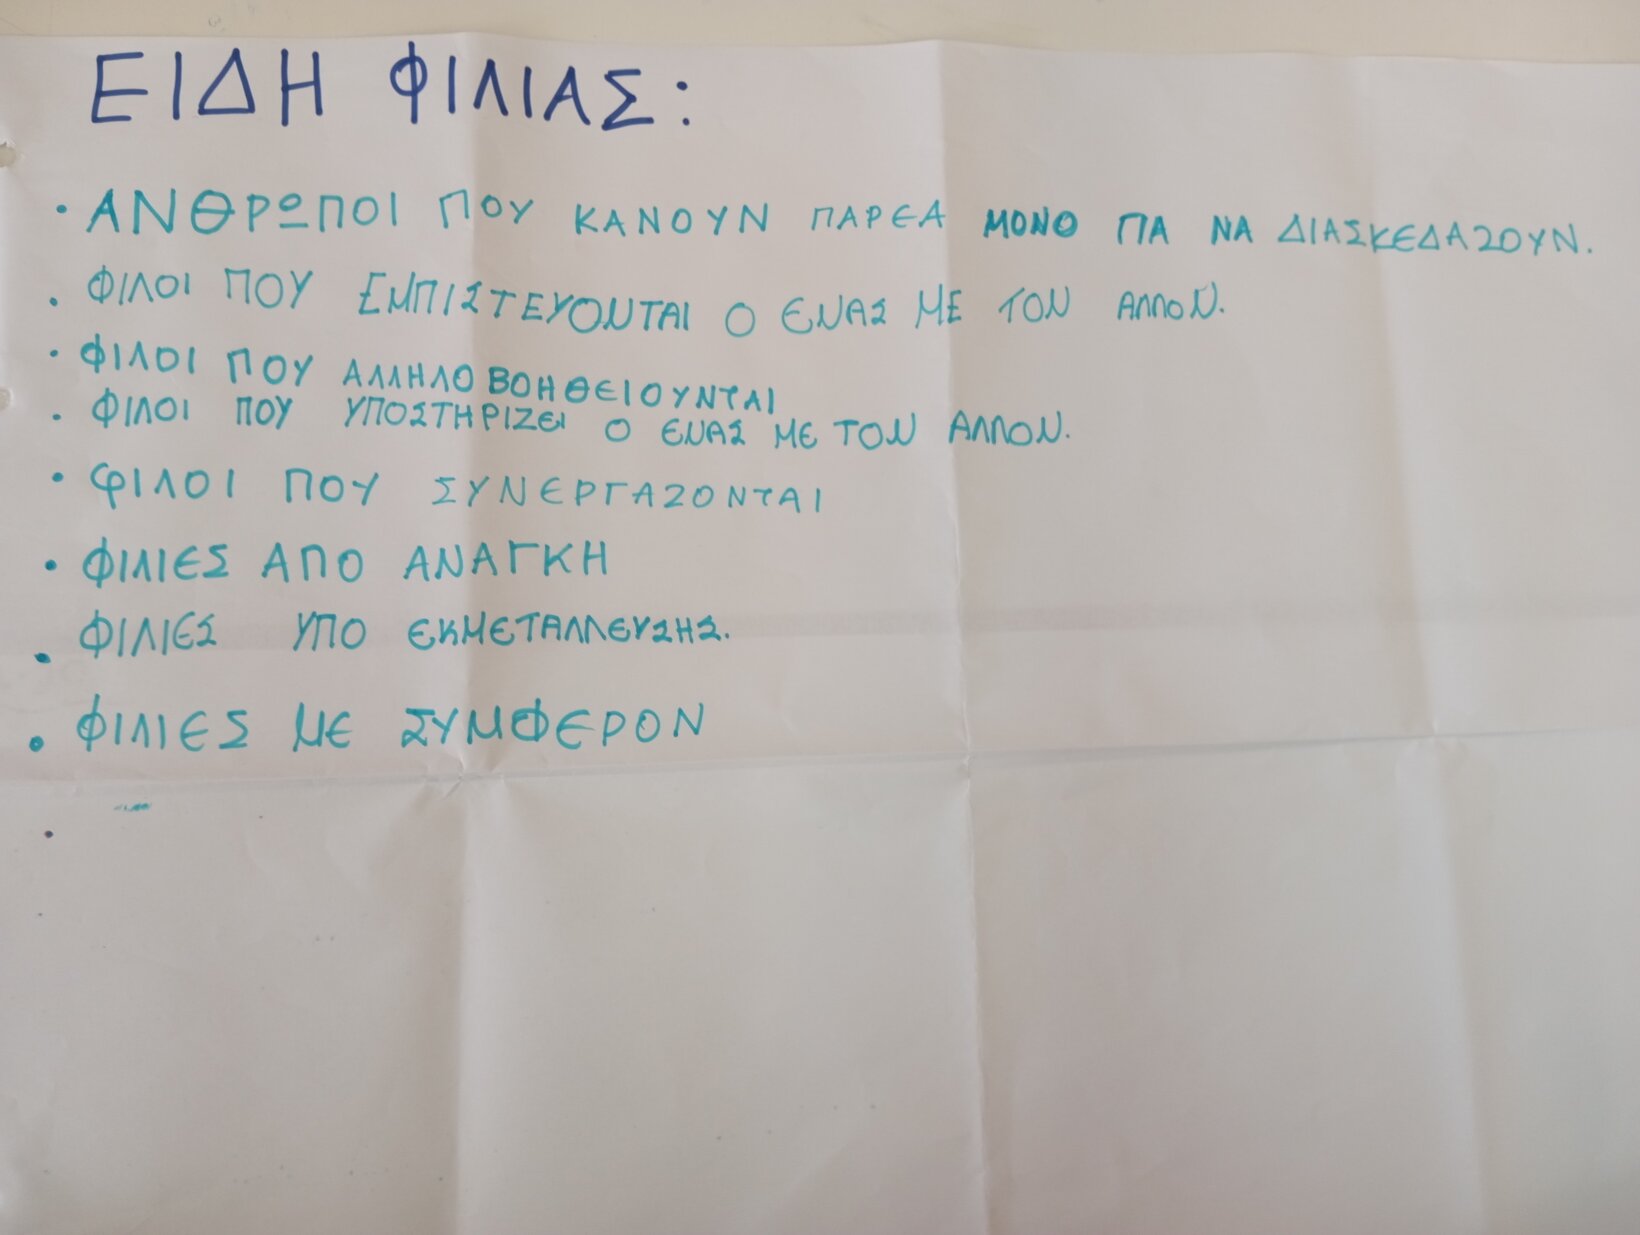 ΕΙΔΗ ΦΙΛΙΑΣ:
• ΑΝΘΡΩΠΟΙ ΠΟΥ ΚΑΝΟΥΝ ΠΑΡΕΑ ΜΟΝΟ ΓΙΑ ΝΑ ΔΙΑΣΚΕΔΑΖΟΥΝ.
• ΦΙΛΟΙ ΠΟΥ ΕΜΠΙΣΤΕΥΟΝΤΑΙ Ο ΕΝΑΣ ΜΕ ΤΟΝ ΑΛΛΟΝ.
• ΦΙΛΟΙ ΠΟΥ ΑΛΛΗΛΟΒΟΗΘΕΙΟΥΝΤΑΙ
• ΦΙΛΟΙ ΠΟΥ ΥΠΟΣΤΗΡΙΖΕΙ Ο ΕΝΑΣ ΜΕ ΤΟΝ ΑΛΛΟΝ.
• ΦΙΛΟΙ ΠΟΥ ΣΥΝΕΡΓΑΖΟΝΤΑΙ
• ΦΙΛΙΕΣ ΑΠΟ ΑΝΑΓΚΗ
• ΦΙΛΙΕΣ ΥΠΟ ΕΚΜΕΤΑΛΛΕΥΣΗΣ.
• ΦΙΛΙΕΣ ΜΕ ΣΥΜΦΕΡΟΝ